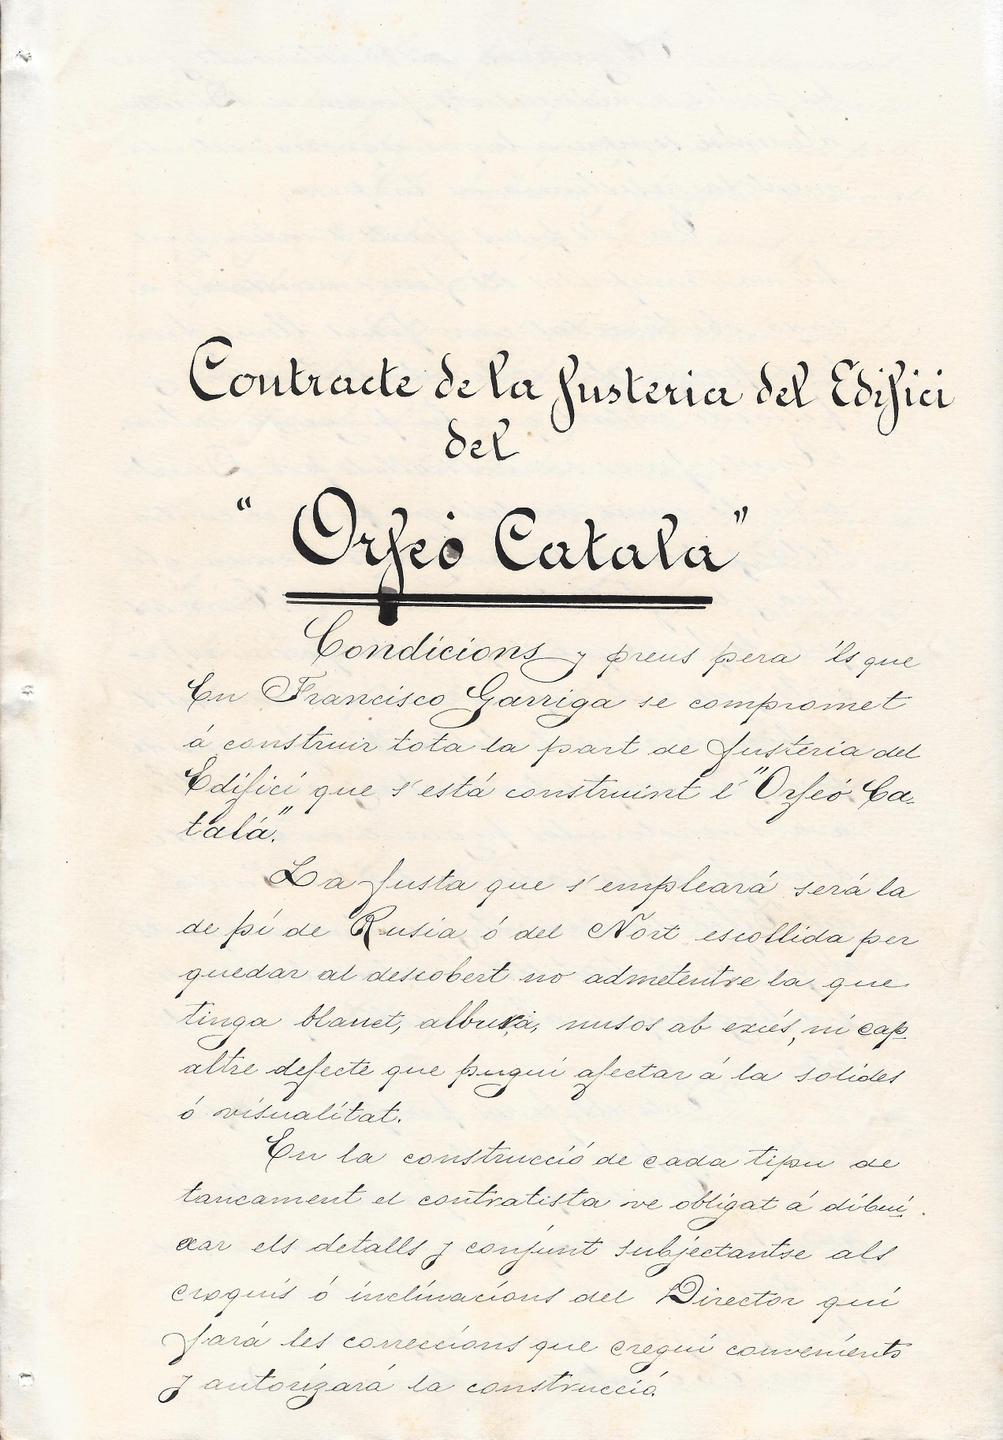 Contracte de la fusteria del Edifici
del
"Orfeó Català"
Condicions y preus pera 'ls que
En Francisco Garriga se compromet
á construir tota la part de fusteria del
Edifici que s'está construint l'"Orfeó Ca-
talá".
La fusta que s'empleará será la
de pi de Rusia ó del Nort escollida per
quedar al descobert no admetentse la que
tinga blanet, albura, nusos ab excés, ni cap
altre defecte que pugui afectar á la solides
ó visualitat.
En la construcció de cada tipu de
tancament el contratista ve obligat á dibui-
xar els detalls y conjunt subjectantse als
croquis ó inclinacions del Director qui
fará les correccions que cregui convenients
y autorizará la construcció.